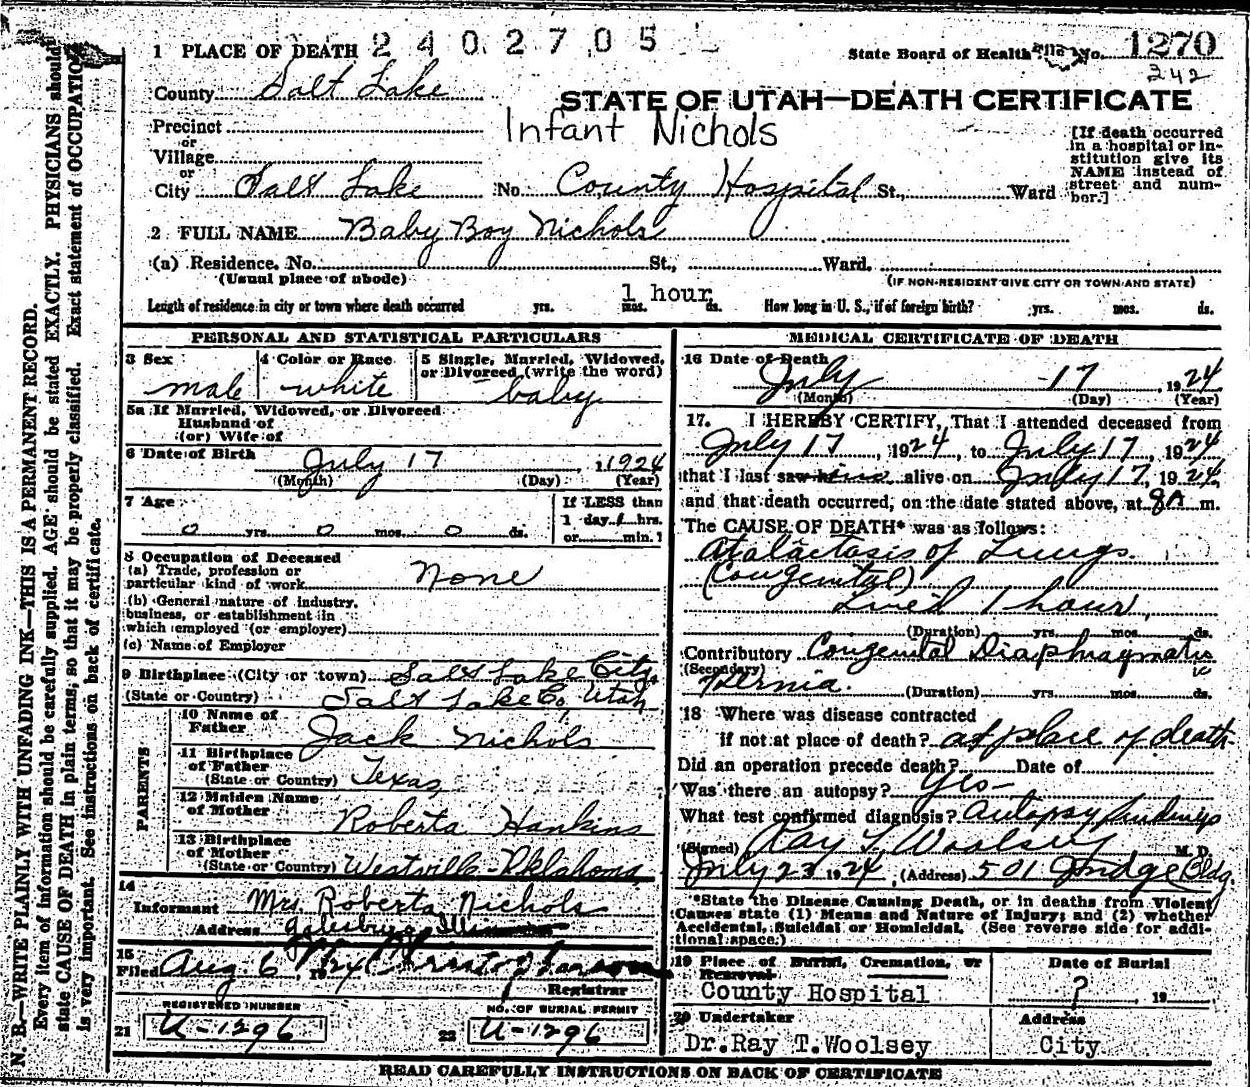 1 PLACE OF DEATH 2 4 0 2 7 0 5
State Board of Health File No. 1270
242
County Salt Lake
STATE OF UTAH—DEATH CERTIFICATE
Precinct
Infant Nichols
or
Village
or
City Salt Lake No. County Hospital St., Ward
[If death occurred
in a hospital or in-
stitution give its
NAME instead of
street and num-
ber.]
2 FULL NAME Baby Boy Nichols
(a) Residence. No. St., Ward.
(Usual place of abode) (IF NON-RESIDENT GIVE CITY OR TOWN AND STATE)
1 hour
Length of residence in city or town where death occurred yrs. mos. ds. How long in U. S., if of foreign birth? yrs. mos. ds.
PERSONAL AND STATISTICAL PARTICULARS
3 Sex 4 Color or Race 5 Single, Married, Widowed,
or Divorced (write the word)
male white baby
5a If Married, Widowed, or Divorced
Husband of
(or) Wife of
6 Date of Birth July 17, 1924
(Month) (Day) (Year)
7 Age If LESS than
0 yrs. 0 mos. 0 ds. 1 day 1 hrs.
or min.
8 Occupation of Deceased
(a) Trade, profession or
particular kind of work None
(b) General nature of industry,
business, or establishment in
which employed (or employer)
(c) Name of Employer
9 Birthplace (City or town) Salt Lake City,
(State or Country) Salt Lake Co, Utah
PARENTS
10 Name of
Father Jack Nichols
11 Birthplace
of Father
(State or Country) Texas
12 Maiden Name
of Mother Roberta Hankins
13 Birthplace
of Mother
(State or Country) Westville Oklahoma
14
Informant Mrs. Roberta Nichols
Address Galesburg, Illinois
15
Filed Aug 6 1924
Registrar
REGISTERED NUMBER NO. OF BURIAL PERMIT
21 U-1296 22 U-1296
MEDICAL CERTIFICATE OF DEATH
16 Date of Death
July 17 1924
(Month) (Day) (Year)
17. I HEREBY CERTIFY, That I attended deceased from
July 17, 1924, to July 17, 1924
that I last saw him alive on July 17, 1924,
and that death occurred, on the date stated above, at 9A m.
The CAUSE OF DEATH* was as follows:
Atalactosis of Lungs.
(Congenital)
Lived 1 hour,
(Duration) yrs. mos. ds.
Contributory Congenital Diaphragmatic
(Secondary)
Hernia. (Duration) yrs. mos. ds.
18 Where was disease contracted
if not at place of death? at place of death
Did an operation precede death? Date of
Was there an autopsy? Yes-
What test confirmed diagnosis? Autopsy findings
(Signed) Ray T. Woolsey M. D.
July 23 1924, (Address) 501 Judge Bldg.
*State the Disease Causing Death, or in deaths from Violent
Causes state (1) Means and Nature of Injury; and (2) whether
Accidental, Suicidal or Homicidal. (See reverse side for addi-
tional space.)
19 Place of Burial, Cremation, or
Removal Date of Burial
County Hospital ?, 19
20 Undertaker Address
Dr.Ray T.Woolsey City
READ CAREFULLY INSTRUCTIONS ON BACK OF CERTIFICATE
N. B.—WRITE PLAINLY WITH UNFADING INK—THIS IS A PERMANENT RECORD.
Every item of information should be carefully supplied. AGE should be stated EXACTLY. PHYSICIANS should
state CAUSE OF DEATH in plain terms, so that it may be properly classified. Exact statement of OCCUPATION
is very important. See instructions on back of certificate.